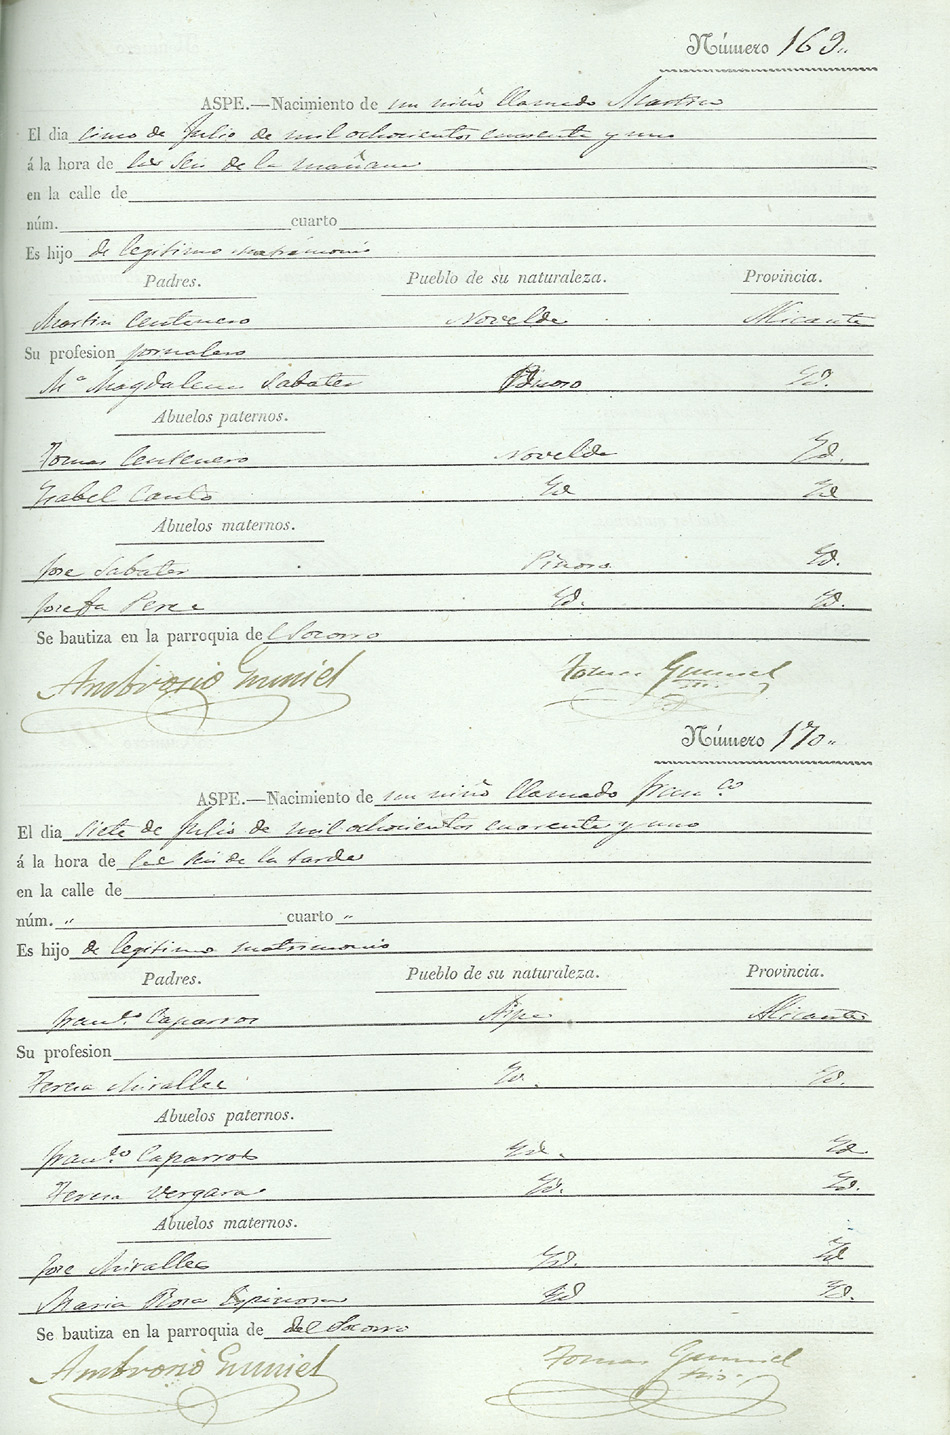 Número 169..
ASPE.—Nacimiento de un niño llamado Martin
El dia cinco de Julio de mil ochocientos cuarenta y uno
á la hora de las seis de la mañana
en la calle de
núm. cuarto
Es hijo de legitimo matrimonio
Padres. Pueblo de su naturaleza. Provincia.
Martin Centenero Novelda Alicante
Su profesion jornalero
Mª Magdalena Sabater Pinoso Yd.
Abuelos paternos.
Tomas Centenero Novelda Yd.
Ysabel Canto Yd Yd
Abuelos maternos.
Jose Sabater Pinoso Yd.
Josefa Perez Yd. Yd.
Se bautiza en la parroquia del Socorro
Ambrosio Tomas
Número 170..
ASPE.—Nacimiento de un niño llamado Franco
El dia siete de Julio de mil ochocientos cuarenta y uno
á la hora de las seis de la tarde
en la calle de
núm. " cuarto "
Es hijo de legitimo matrimonio
Padres. Pueblo de su naturaleza. Provincia.
Franco Caparros Aspe Alicante
Su profesion
Teresa Miralles Yd. Yd.
Abuelos paternos.
Franco Caparros Yd. Yd
Teresa Vergara Yd. Yd.
Abuelos maternos.
Jose Miralles Yd. Yd
Maria Rosa Espinosa Yd Yd.
Se bautiza en la parroquia de del Socorro
Ambrosio Tomas